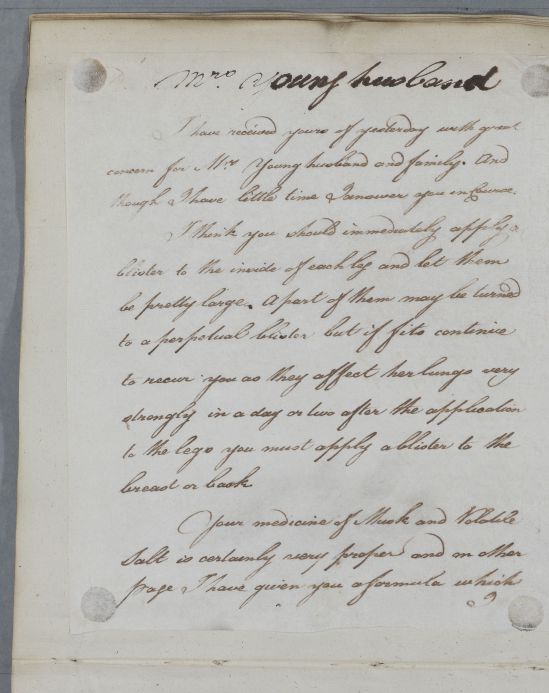 Mrs. Younghusband
I have received yours of yesterday with great
concern for Mrs Younghusband and family. And
though I have little time I answer you in Course.
I think you should immediately apply a
blister to the inside of each leg and let them
be pretty large. A part of them may be turned
to a perpetual blister but if fits continue
to recur you as they affect her lungs very
strongly in a day or two after the application
to the legs you must apply a blister to the
breast or back
Your medicine of Musk and Volatile
Salt is certainly very proper and on other
page I have given you a formula which